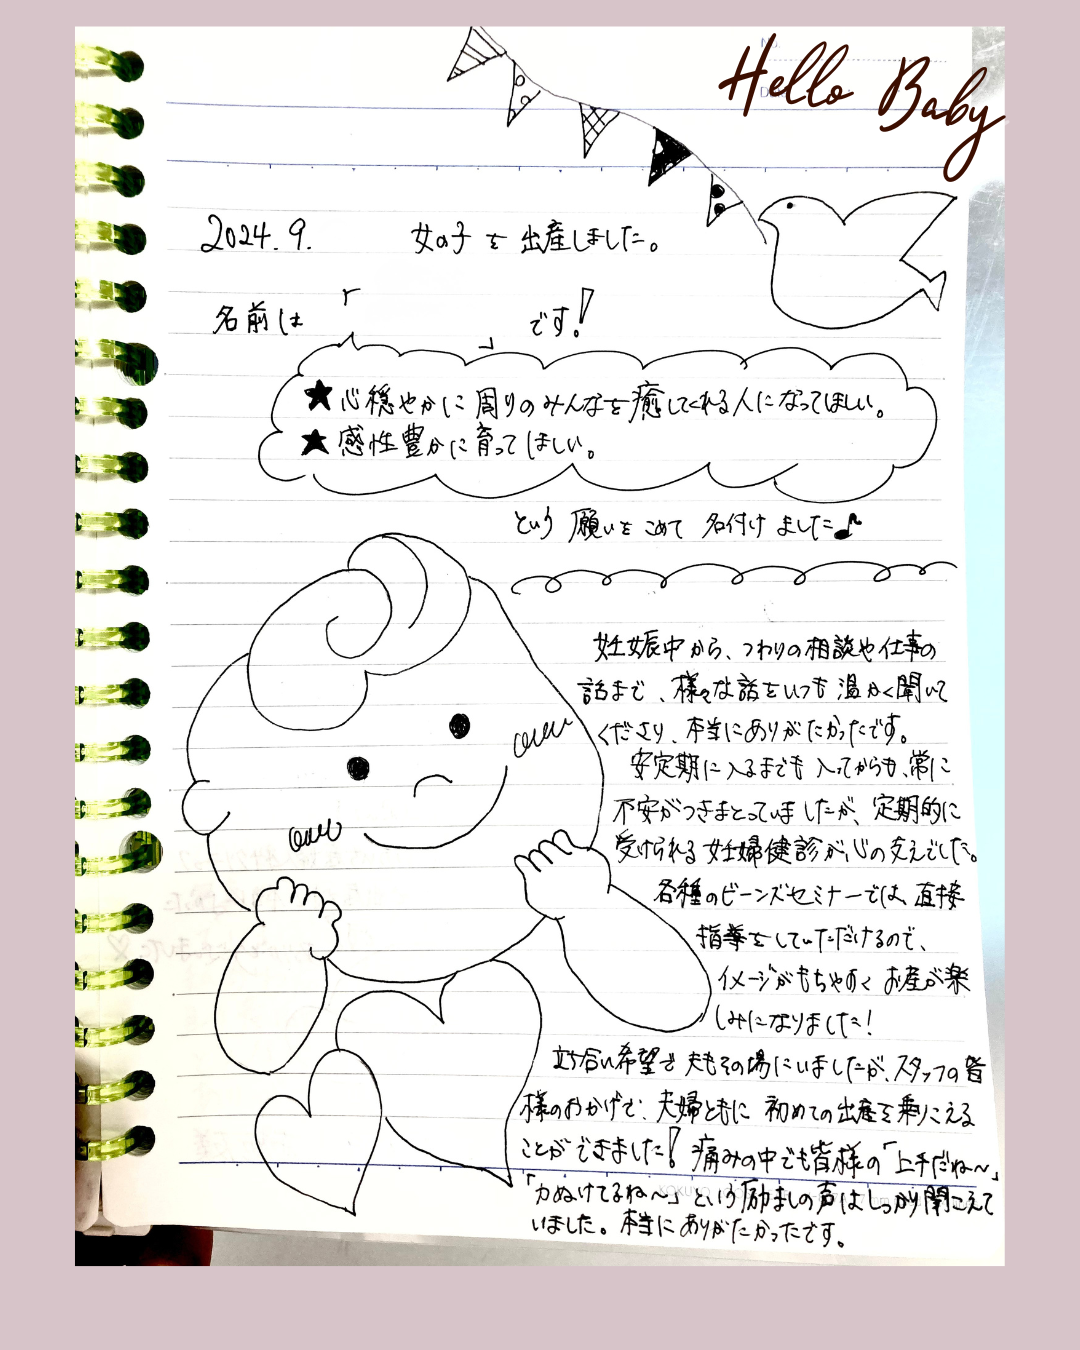 Hello Baby
2024.9. 女の子を出産しました。
名前は「 」です!
★心穏やかに周りのみんなを癒してくれる人になってほしい。
★感性豊かに育ってほしい。
という願いをこめて名付けました♪
妊娠中から、つわりの相談や仕事の
話まで、様々な話をいつも温かく聞いて
くださり、本当にありがたかったです。
安定期に入るまでも入ってからも、常に
不安がつきまとっていましたが、定期的に
受けられる妊婦健診が心の支えでした。
各種のビーンズセミナーでは、直接
指導をしていただけるので、
イメージがもちやすくお産が楽
しみになりました!
立ち合い希望で夫もその場にいましたが、スタッフの皆
様のおかげで、夫婦ともに初めての出産を乗りこえる
ことができました!痛みの中でも皆様の「上手だね〜」
「力ぬけてるね〜」という励ましの声はしっかり聞こえて
いました。本当にありがたかったです。